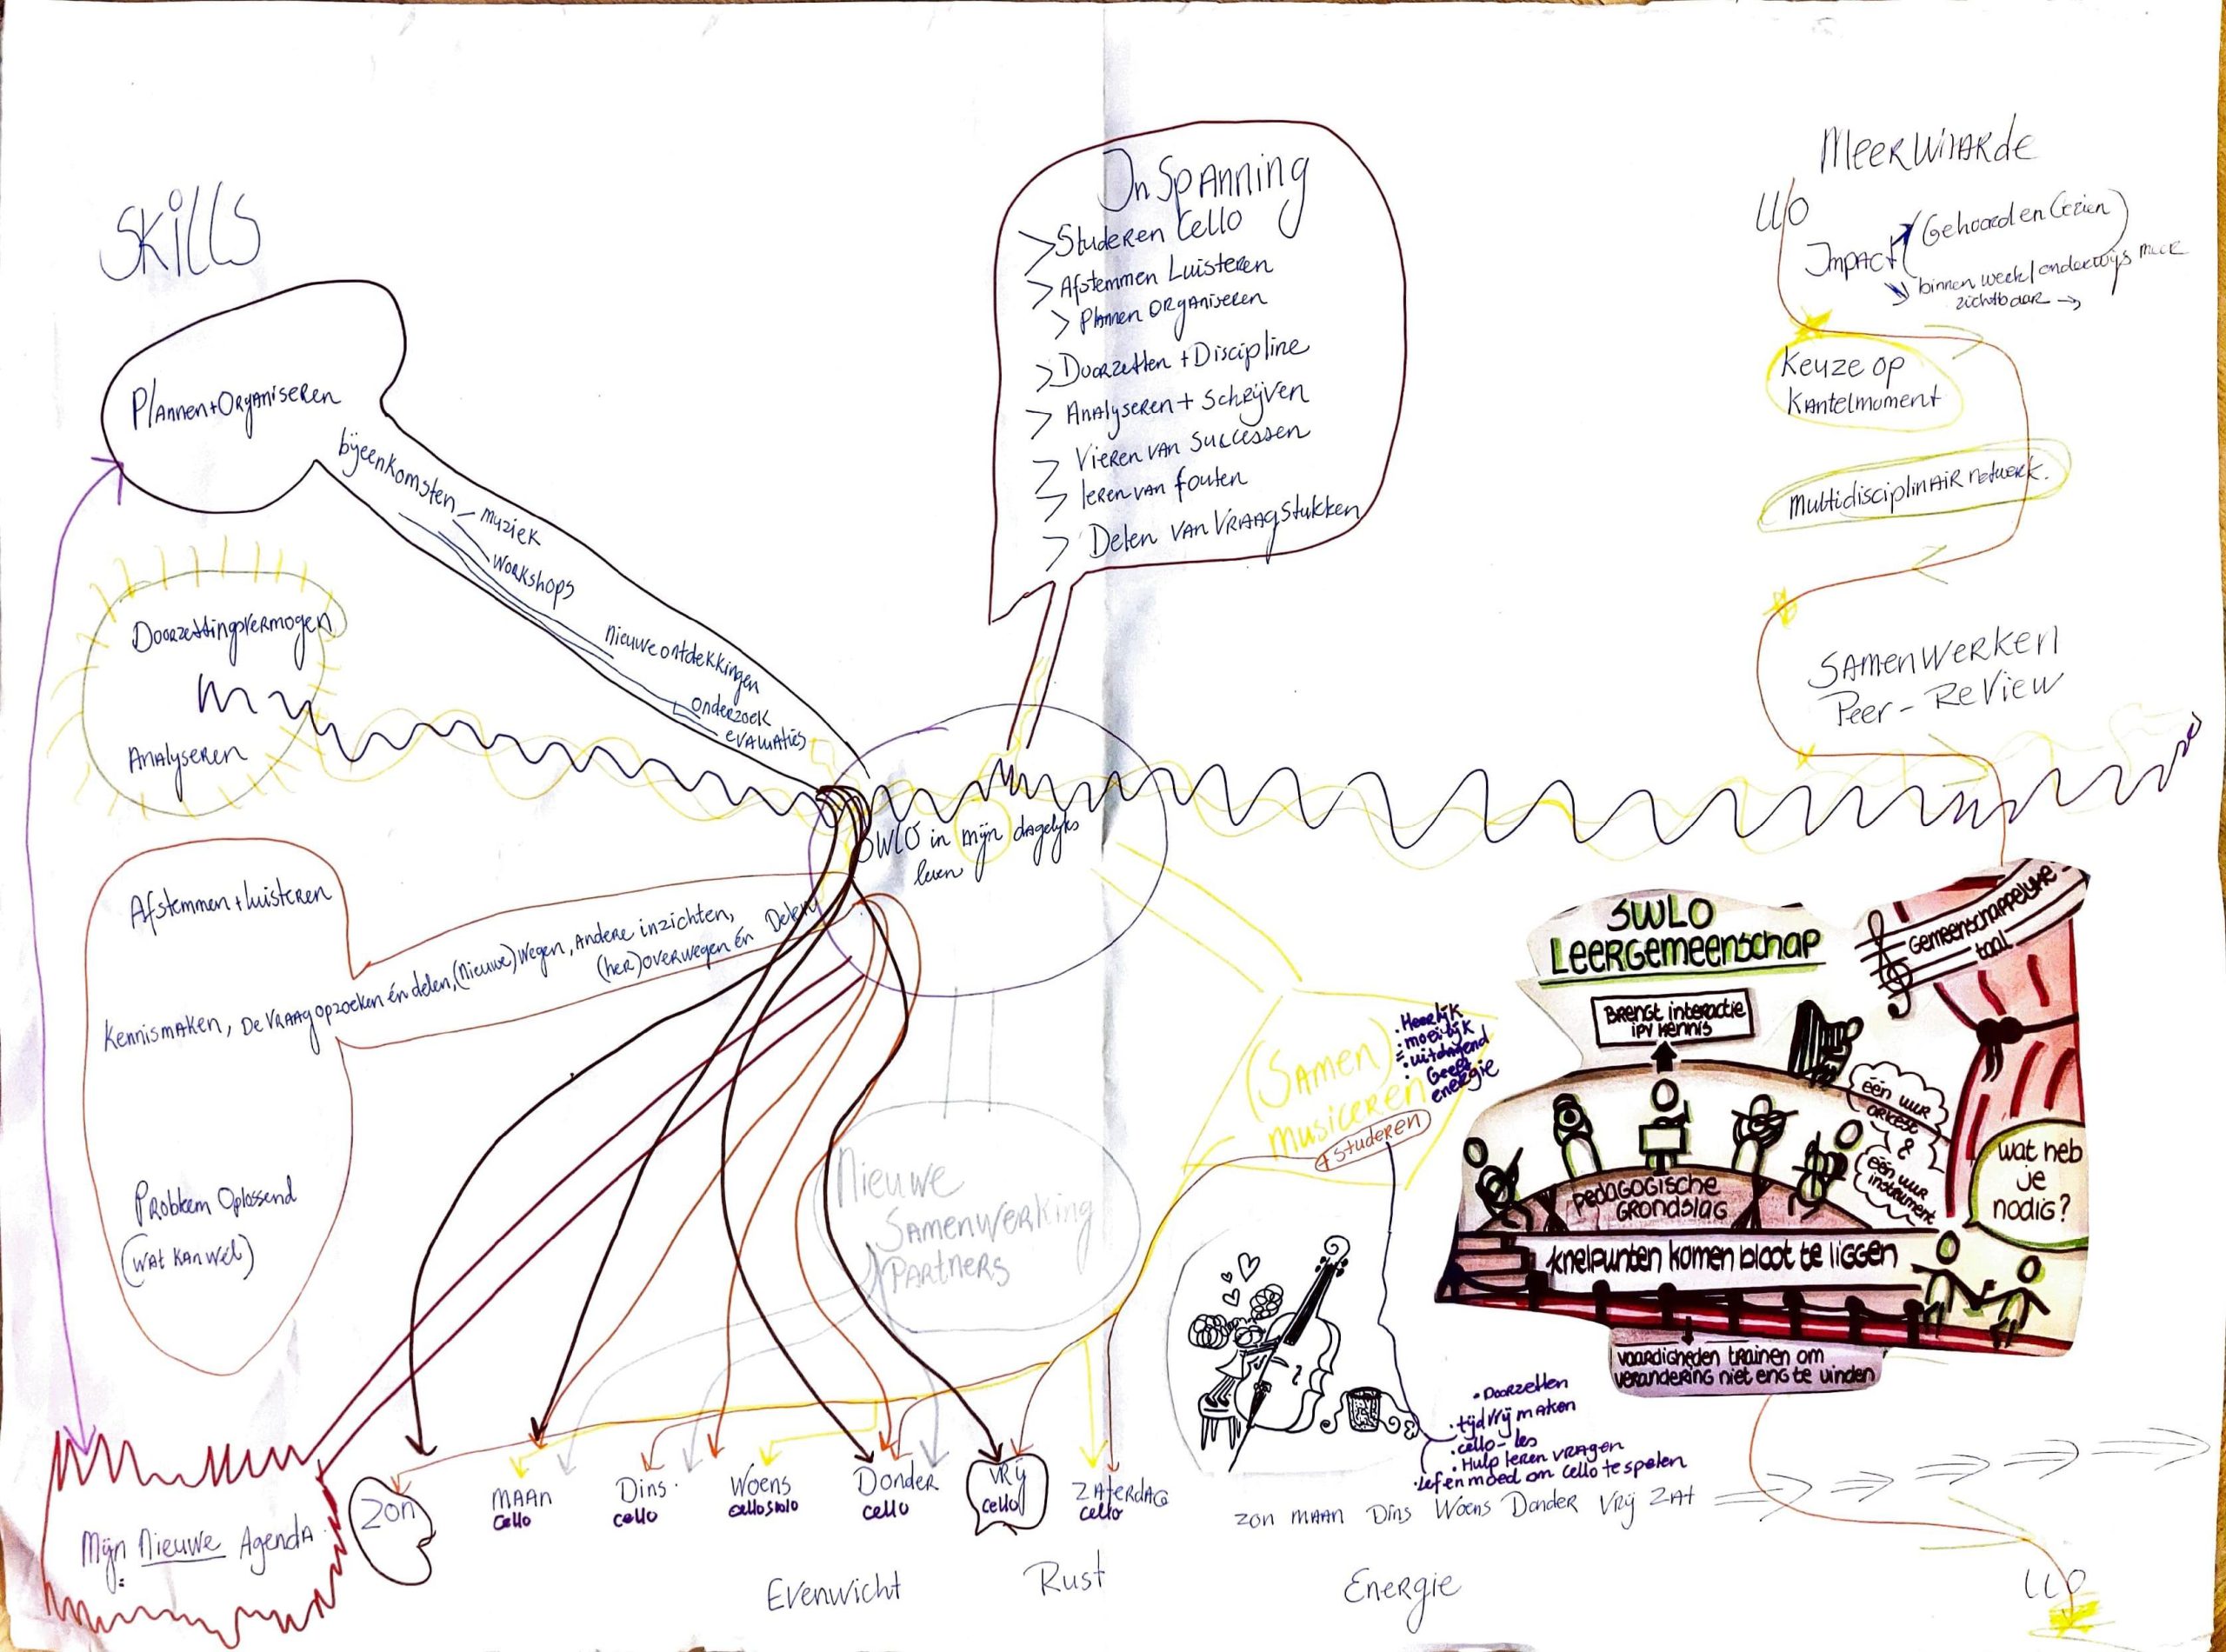 Skills
Plannen + Organiseren
bijeenkomsten - muziek
workshops
nieuwe ontdekkingen
onderzoek
evaluaties
Doorzettingsvermogen
Analyseren
Afstemmen + luisteren
Kennismaken, De vraag opzoeken én delen, (nieuwe) wegen, Andere inzichten,
(her)overwegen én Delen
Probleem Oplossend
(Wat kan wél)
Mijn Nieuwe Agenda
InSpanning
> Studeren Cello
> Afstemmen Luisteren
> Plannen Organiseren
> Doorzetten + Discipline
> Analyseren + Schrijven
> Vieren van Successen
> leren van fouten
> Delen van Vraagstukken
SWLO in mijn dagelijks
leven
Nieuwe
Samenwerking
Partners
(Samen)
musiceren
+ Studeren
• Heerlijk
• moeilijk
= • uitdagend
Geeft
energie
Meerwaarde
LLO
Impact
(Gehoord en Gezien)
binnen werk/onderwijs meer
zichtbaar →
Keuze op
Kantelmoment
Multidisciplinair netwerk.
Samenwerken
Peer-Review
SWLO
Leergemeenschap
Gemeenschappelijke
taal
Brengt interactie
ipv kennis
één uur
orkest
&
één uur
instrument
wat heb
je
nodig?
pedagogische
grondslag
knelpunten komen bloot te liggen
vaardigheden trainen om
verandering niet eng te vinden
• Doorzetten
• tijd vrij maken
• cello-les
• Hulp leren vragen
• Lef en moed om cello te spelen
Zon
Maan
Cello
Dins.
cello
Woens
cello solo
Donder
cello
Vrij
cello
Zaterdag
cello
Zon Maan Dins Woens Donder Vrij Zat
Evenwicht
Rust
Energie
LLO